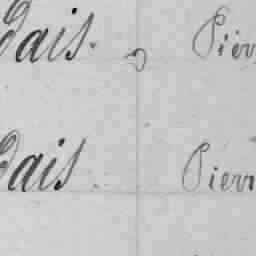 dais. Pier
dais. Pierr